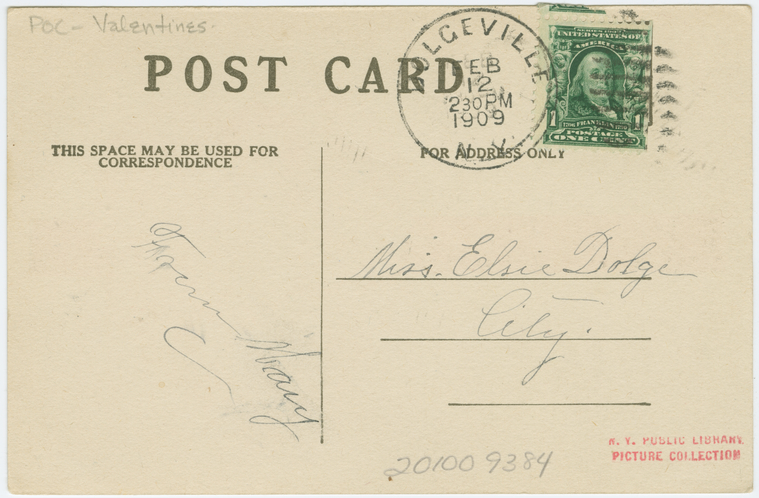 POC - Valentines.
POST CARD
DOLGEVILLE
FEB
12
230PM
1909
N.Y.
SERIES 1902
UNITED STATES OF
AMERICA
1
FRANKLIN
1
POSTAGE
ONE CENT
THIS SPACE MAY BE USED FOR
CORRESPONDENCE
FOR ADDRESS ONLY
From Mary
Miss. Elsie Dolge
City.
N. Y. PUBLIC LIBRARY
PICTURE COLLECTION
201009384